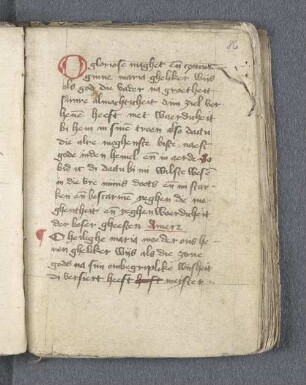 86
O gloriose maghet en̄ coninc
ginne maria gheliker wijs
als god die vader na groetheit
sijnre almachticheit dijn ziel ver
heuē heeft met waerdicheit
bi hem in sine troen also dattu
die alre meghenste biste naest
gode inden hemel en̄ in aerde So
bid ic di dattu bi mi wilste wesē
in die vre mijns doots en̄ mi star
ken en̄ bescarme teghen die mo
ghentheit en̄ teghenwaerdicheit
der boser gheesten Amen
O heilighe maria moeder ons he
ren gheliker wijs als die zone
gods na sijn onbegripelike wijsheit
di versiert heeft meister